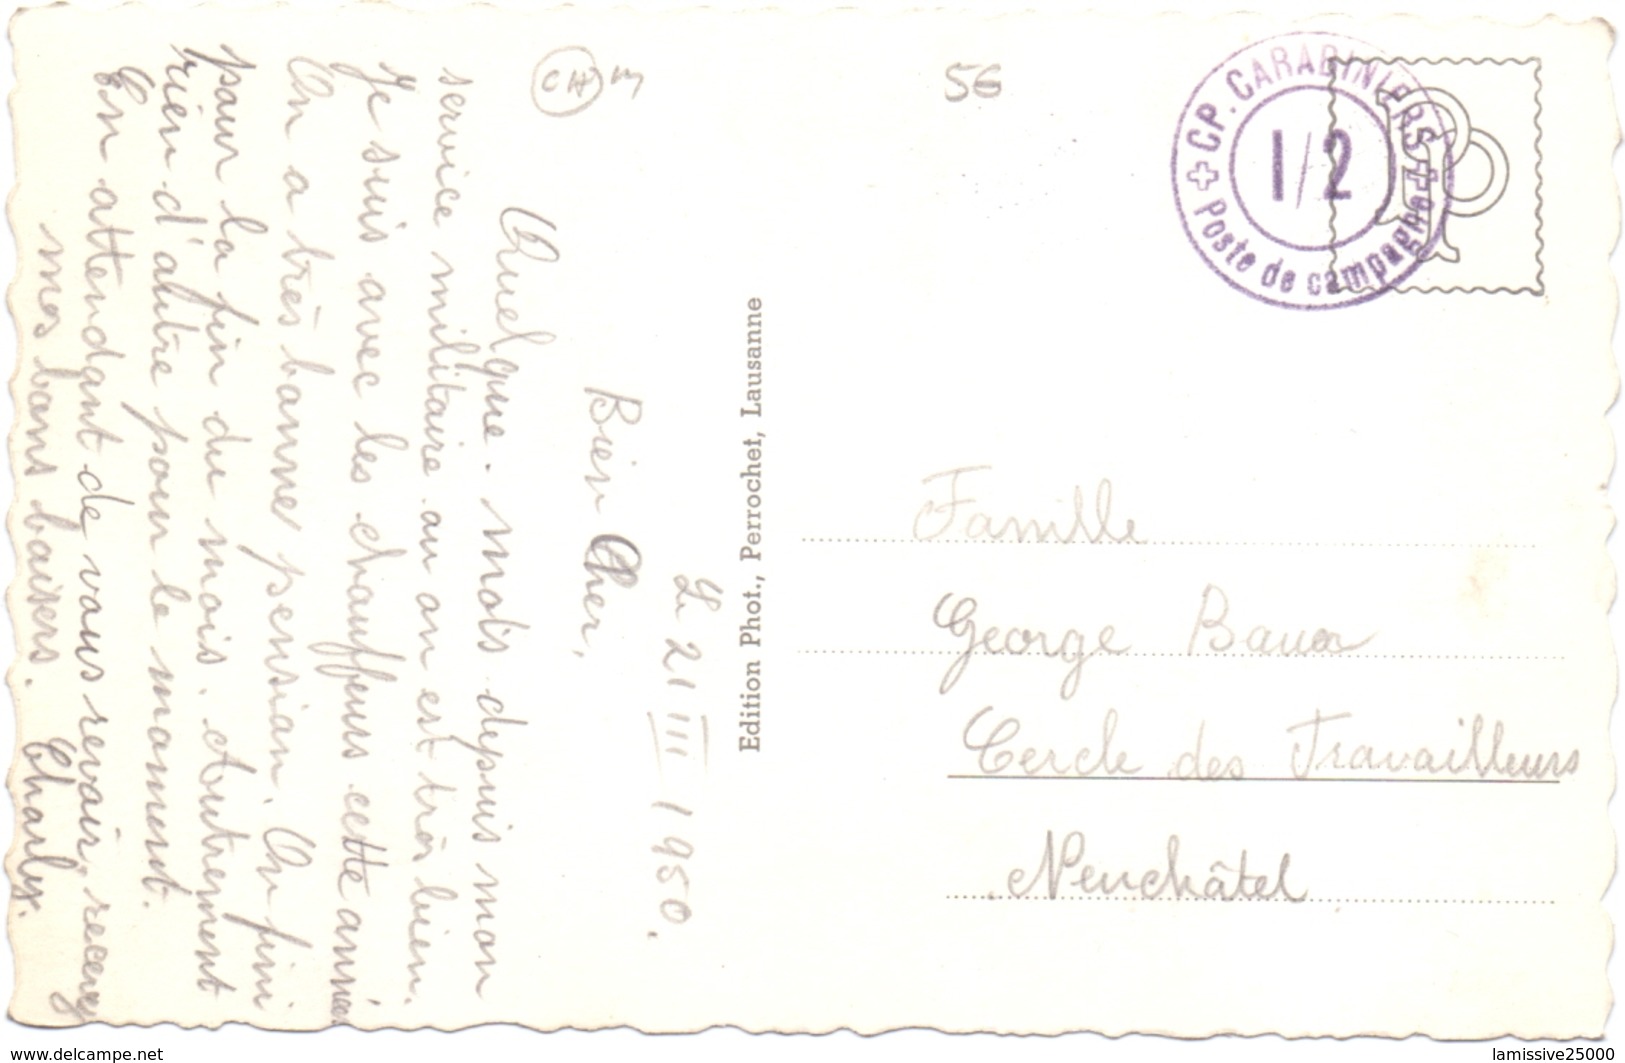 Le 21 III 1950.
Bien Cher,
Quelque mots depuis mon
service militaire au on est très bien.
Je suis avec les chauffeurs cette année
On a très bonne pension. On fini
pour la fin du mois. Autrement
rien d'autre pour le moment.
En attendant de vous revoir, recevez
mes bons baisers. Charly.
Edition Phot., Perrochet, Lausanne
CH
56
CP. CARABINIERS
1/2
Poste de campagne
Famille
George
Cercle des Travailleurs
Neuchâtel
www.delcampe.net
lamissive25000